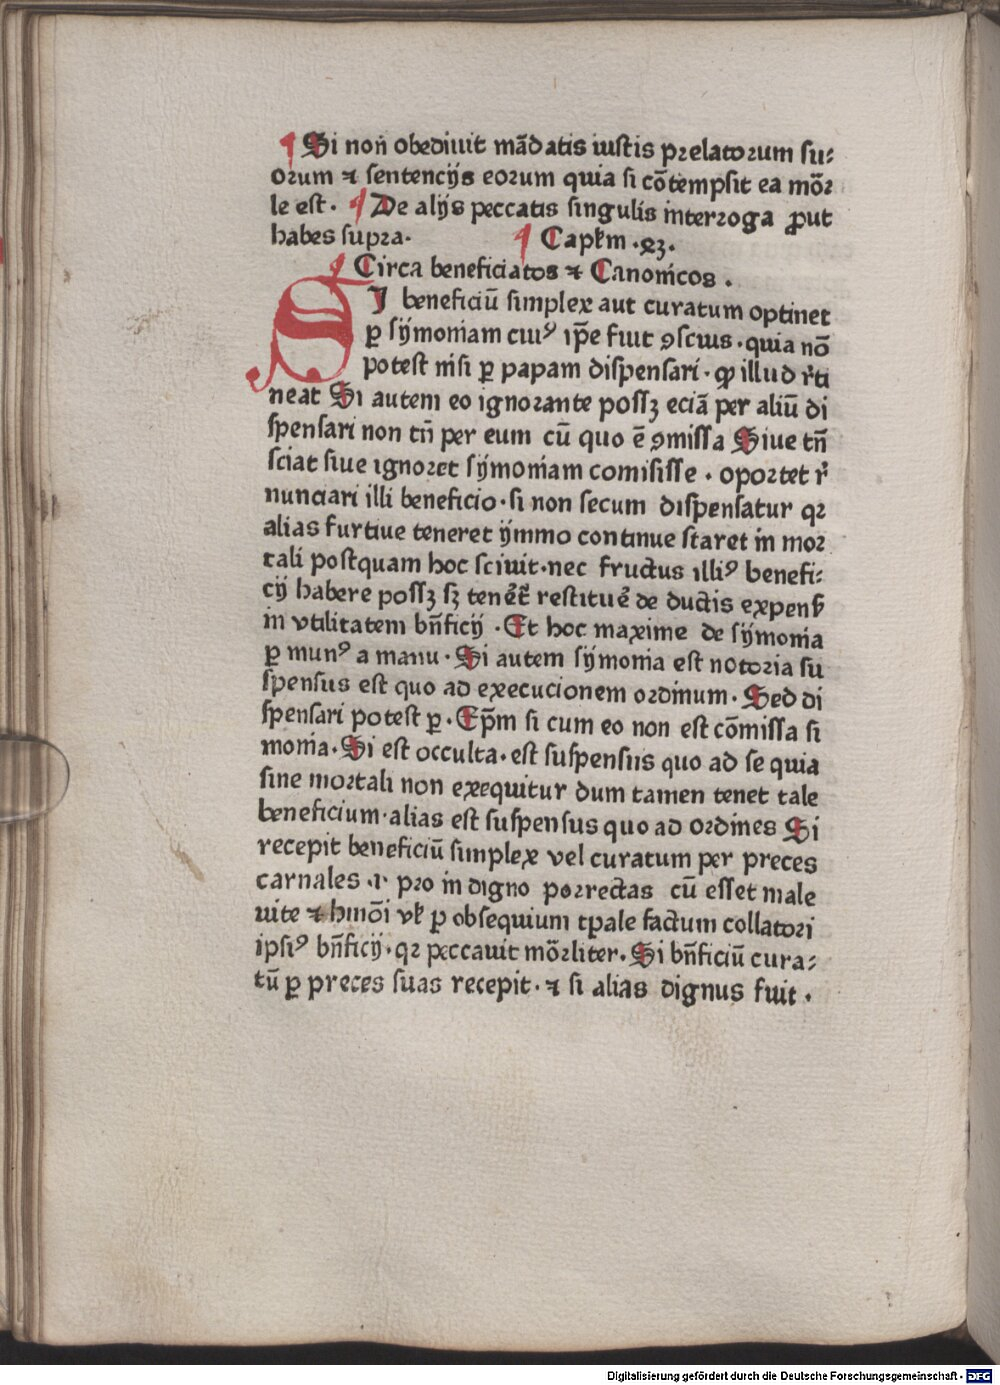 ¶ Si non̄ obediuit mādatis iustis prelatorum su⸗
orum ⁊ sentencijs eorum quia si cōtempsit ea mōr
le est. ¶ De alijs peccatis singulis interroga ꝓut
habes supra. ¶ Capłm .23.
¶ Circa beneficiatos ⁊ Canonicos .
SJ beneficiū simplex aut curatum optinet
ꝑ sijmoniam cuiꝰ ip̄e fuit ꝯscius . quia nō
potest nisi ꝑ papam dispensari . ꝙ illud r̓ti
neat Si autem eo ignorante possꝫ eciā per aliū di
spensari non tn̄ per eum cū quo ē ꝯmissa Siue tn̄
sciat siue ignoret sijmoniam comisisse . oportet r̓
nunciari illi beneficio . si non secum dispensatur qꝛ
alias furtiue teneret ijmmo continue staret in mor
tali postquam hoc sciuit . nec fructus illiꝰ benefi⸗
cij habere possꝫ sꝫ tenēt̄ restitue᷑ de ductis expens̓
in vtilitatem bn̄ficij . Et hoc maxime de sijmonia
ꝑ munꝰ a manu . Si autem sijmonia est notoria su
spensus est quo ad execucionem ordinum . Sed di
spensari potest ꝑ . Ep̄m si cum eo non est cōmissa si
monia . Si est occulta . est suspensus quo ad se quia
sine mortali non exequitur dum tamen tenet tale
beneficium . alias est suspensus quo ad ordines Si
recepit beneficiū simplex vel curatum per preces
carnales .i. pro in digno porrectas cū esset male
uite ⁊ hmōi vł ꝑ obsequium tpale factum collatori
ipsiꝰ bn̄ficij . qꝛ peccauit mōrliter . Si bn̄ficiū cura⸗
tū ꝑ preces suas recepit . ⁊ si alias dignus fuit .
Digitalisierung gefördert durch die Deutsche Forschungsgemeinschaft - DFG